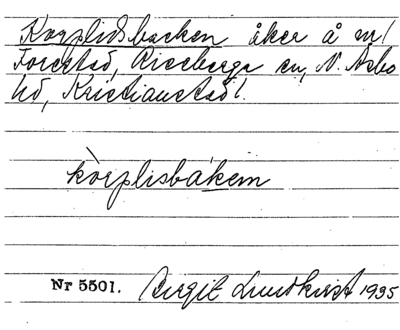 Korplidsbacken åker å nr 1
Forestad, Riseberga sn, N. Åsbo
hd, Kristianstad l.
kòrplisbàkėm
Nr 5501. Birgit Lundkvist 1935